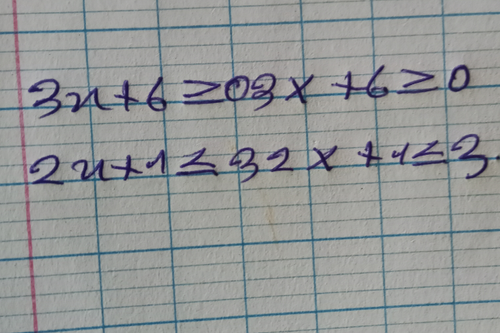 3x+6 ≥03x +6 ≥ 0
2x+1 ≤ 32x +1 ≤ 3.